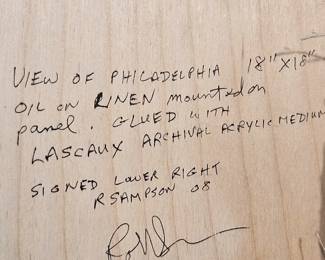 VIEW OF PHILADELPHIA 18" X 18"
OIL ON LINEN mounted on
panel. GLUED WITH
LASCAUX ARCHIVAL ACRYLIC MEDIUM
SIGNED LOWER RIGHT
R SAMPSON 08